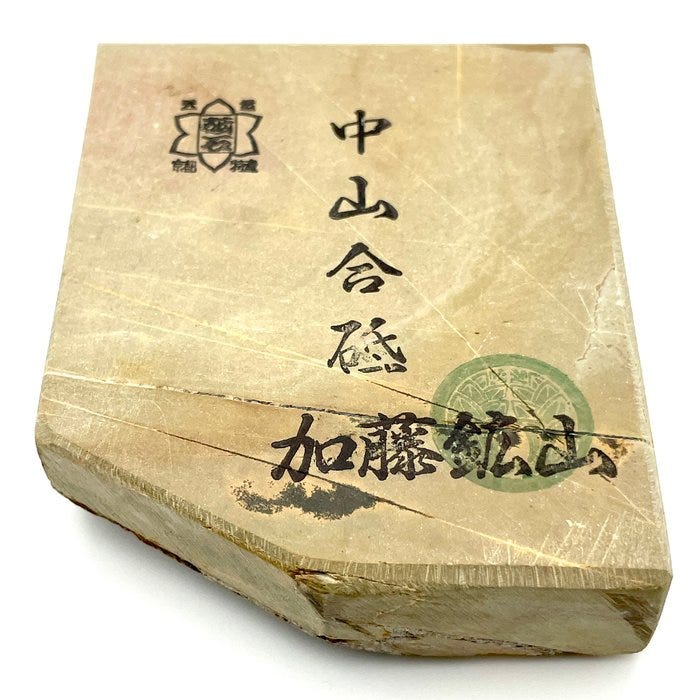 中山合砥
加藤鉱山
天然
砥石
京都
特産